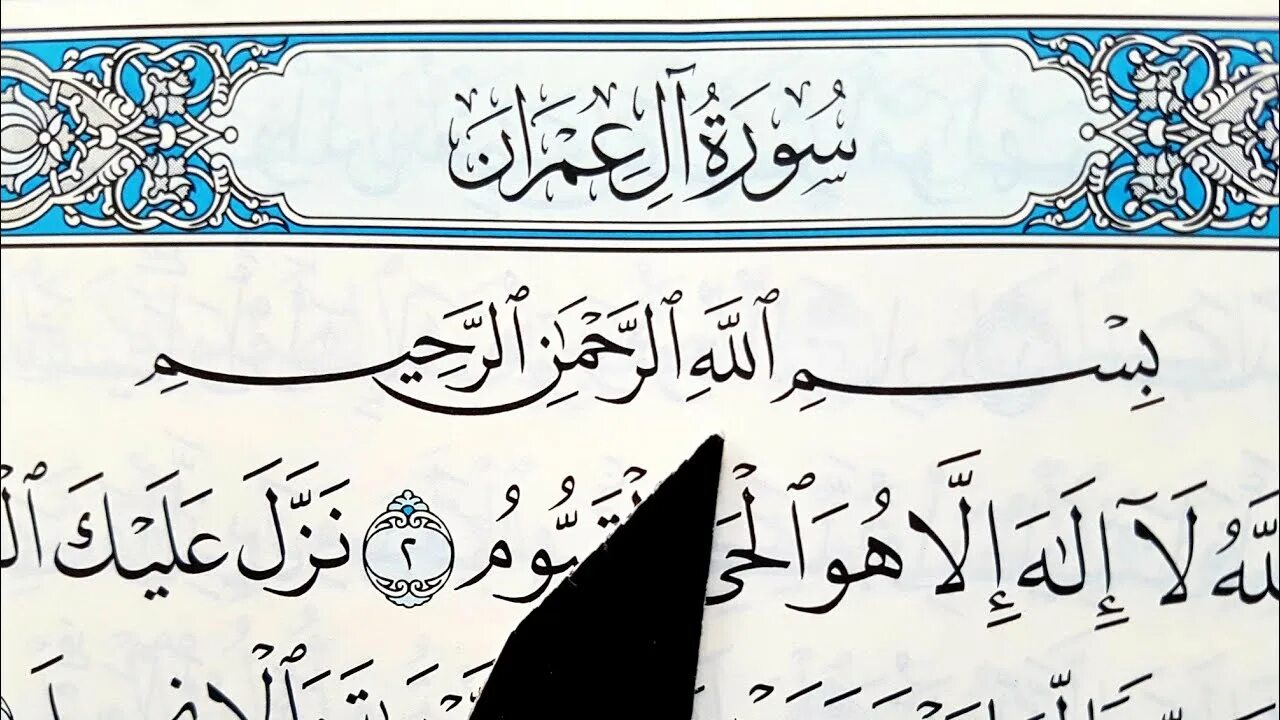 سُورَةُ آلِ عِمْرَانَ
بِسْمِ ٱللَّهِ ٱلرَّحْمَٰنِ ٱلرَّحِيمِ
لَآ إِلَٰهَ إِلَّا هُوَ ٱلْحَىُّ ٱلْقَيُّومُ ٢ نَزَّلَ عَلَيْكَ